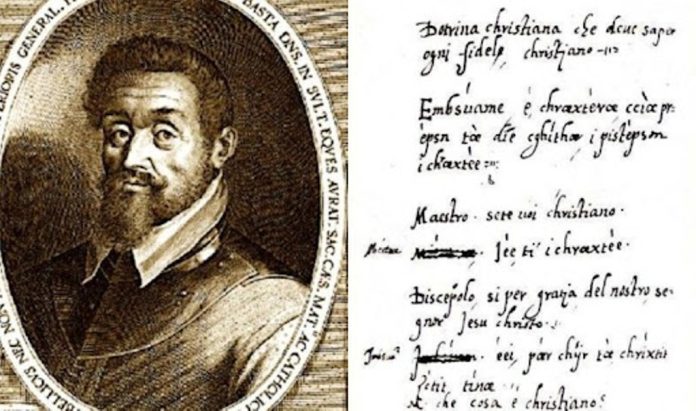 ERIORIS GENERAL.
BASTA DNS. IN SVLT. EQVES AVRAT. SAC. CÆS. MAT. AC CATHOLICI
BELLICVS NEC NON
Dotrina christiana che deue saper
ogni fidel christiano
Embsúame é chræxteræ
tæ díe i pistépsm
i chræxtée
Maestro. sete uoi christiano.
Iéę ti i chræxtée.
Discepolo, si per gratia del nostro se-
gnor Jesu christo.
éęi, pár chÿr tæ chrixtit
Zétit, tinæ
che cosa è christiano?